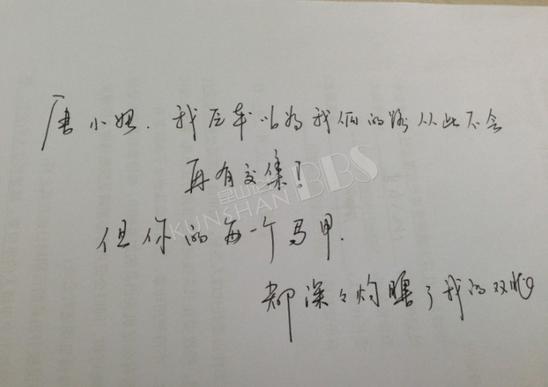 唐小姐. 我原本以为我俩的路从此不会
再有交集!
但你的每一个马甲.
都深々灼瞎了我的双眼
昆山 BBS
KUNSHAN